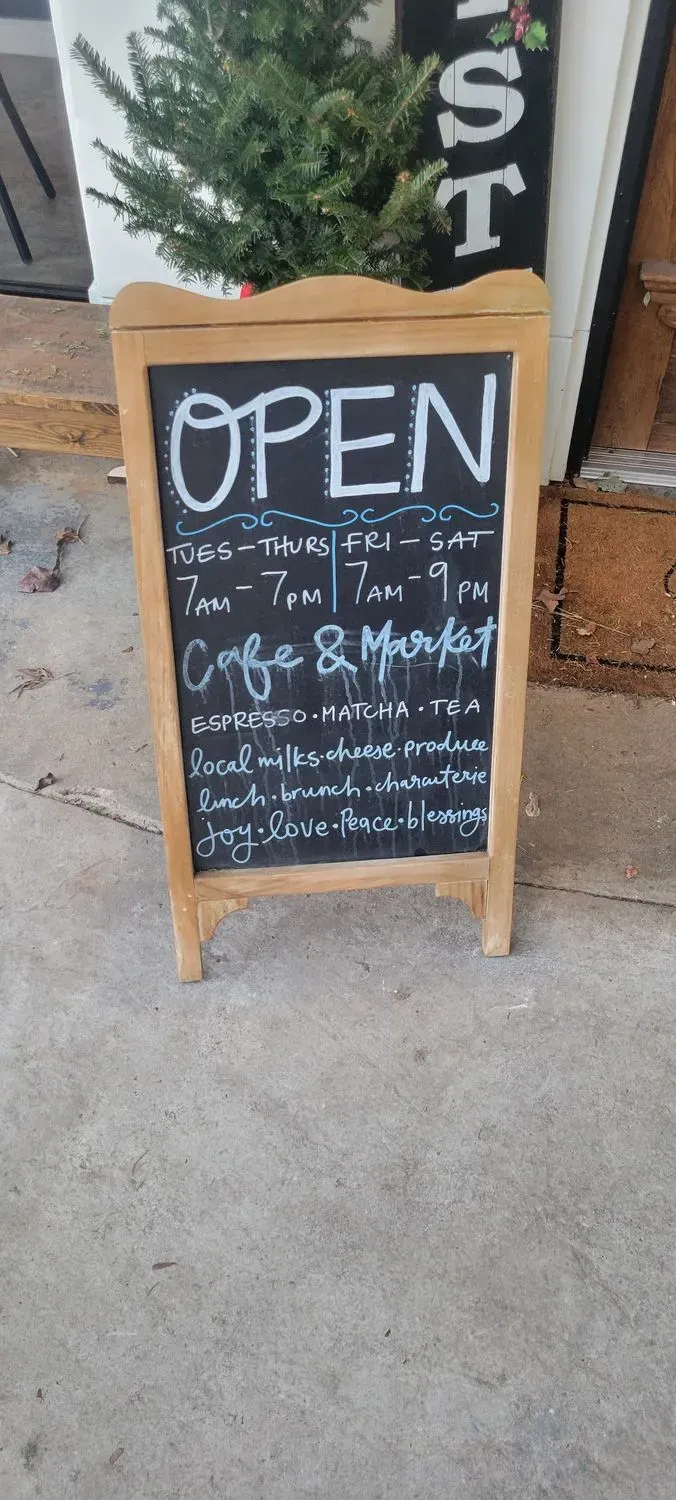 ST
OPEN
TUES-THURS FRI - SAT
7AM - 7PM 7AM - 9PM
Cafe & Market
ESPRESSO · MATCHA · TEA
local milks · cheese · produce
lunch · brunch · characuterie
joy · love · Peace · blessings